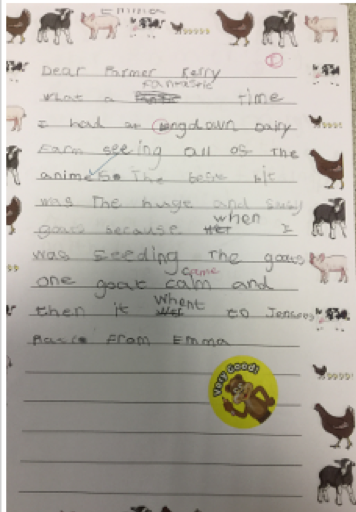 Emma
Dear Farmer Kerry
fantastic
What a time
I had at Longdown Dairy
Farm seeing all of the
animels. The beste bit
was The huge and
goats because when I
was feeding The goats
came
one goat calm and
then it whent to Jensons
from Emma
Very Good!